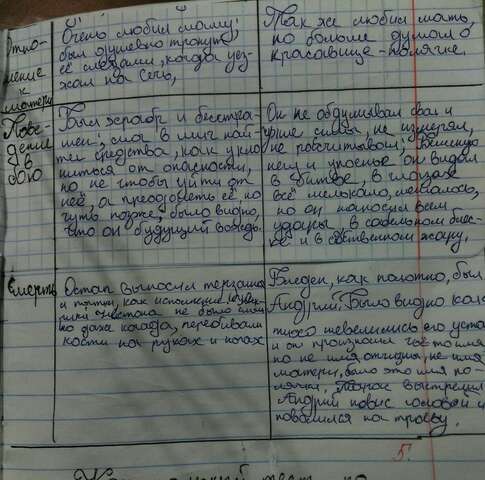 Отно-
шение
к
матери
Очень любил маму;
был душевно тронут
её слезами, когда уез-
жал на Сечь,
Так же любил мать,
но больше думал о
красавице-полячке.
Пове-
дение
в
бою
Был храбр и бесстра-
шен; смог в миг най-
ти средства, как укло
ниться от опасности,
но не чтобы уйти от
неё, а преодолеть её, но
чуть позже, было видно,
что он будущий вождь.
Он не обдумывал свои и
чужие силы, не измерял,
не рассчитывал, бешеную
негу и упоенье он видал
в битве, в глазах
всё мелькало, металось,
но он наносил всем
удары в сабельном блес-
ке и в собственном жару.
Смерть
Остап выносил терзания
и пытки, как исполин
не было слыш
но даже когда, перебивали
кости на руках и ногах
Бледен, как полотно, был
Андрий. Было видно как
тихо шевелились его уста
и он произносил чьё-то имя
но не имя отчизны, не имя
матери, было это имя по-
лячки. Тарас выстрелил
Андрий повис головой и
повалился на траву.
5.